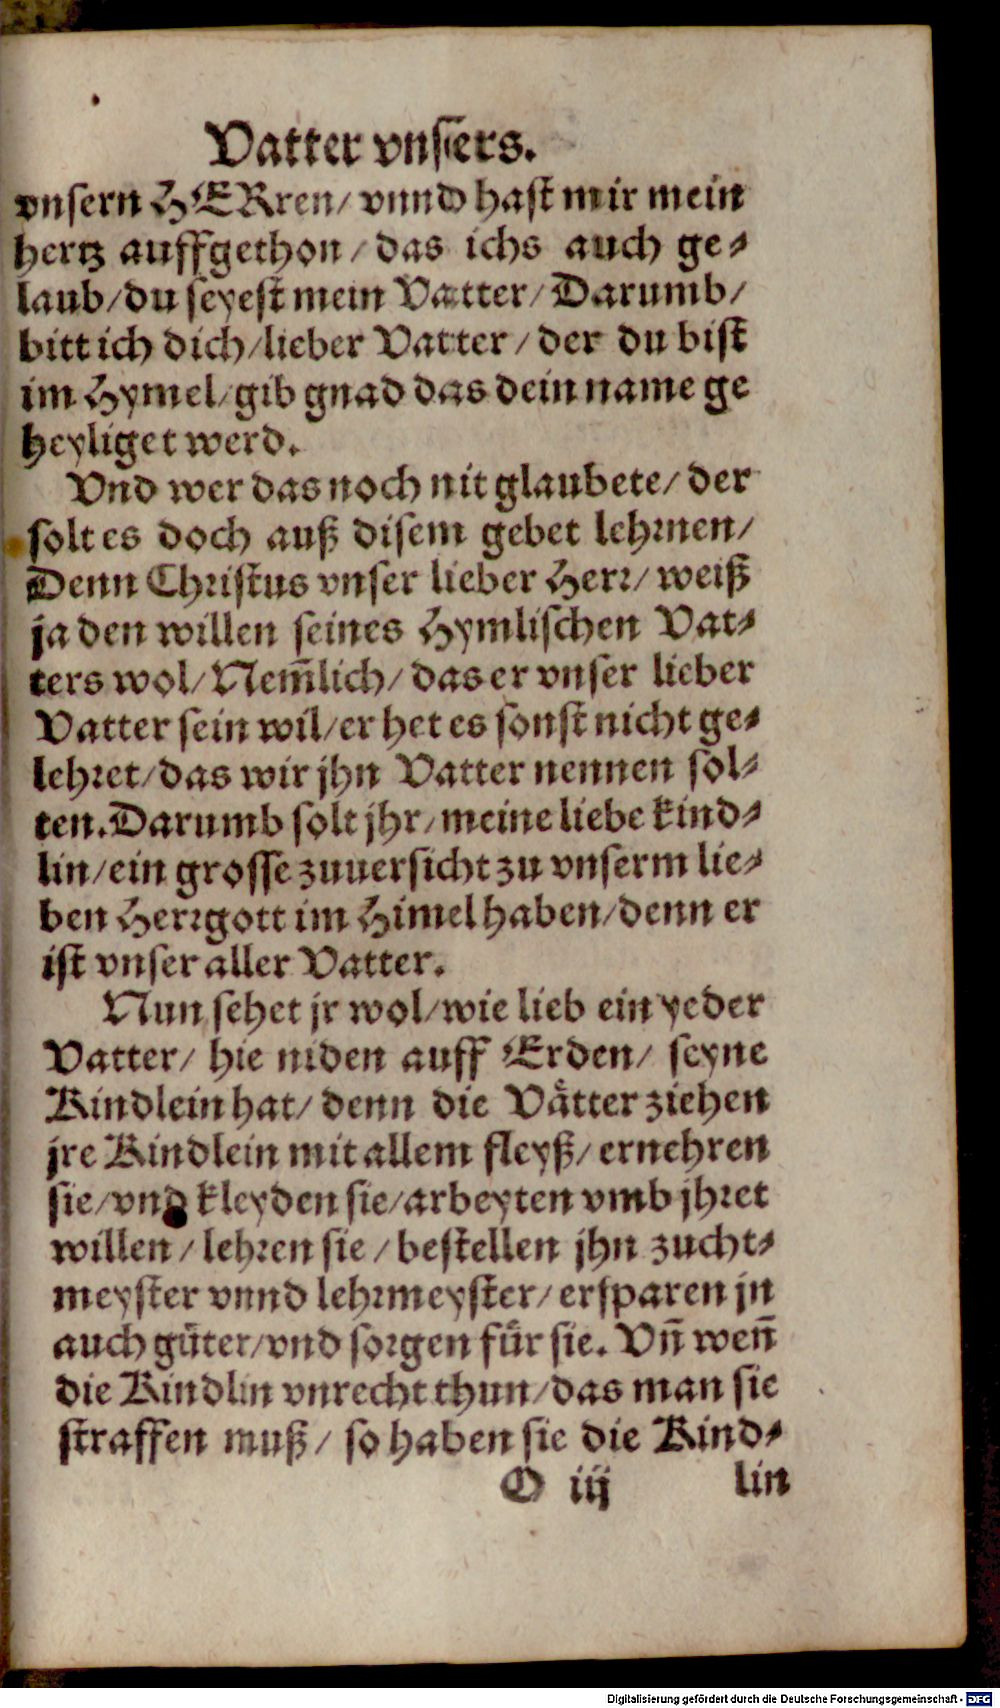 Vatter vnsers.
vnsern HERren/ vnnd hast mir mein
hertz auffgethon/ das ichs auch ge-
laub/ du seyest mein Vatter/ Darumb/
bitt ich dich/ lieber Vatter/ der du bist
im Hymel/ gib gnad das dein name ge
heyliget werd.
Vnd wer das noch nit glaubete/ der
solt es doch auß disem gebet lehrnen/
Denn Christus vnser lieber Herr/ weiß
ja den willen seines Hymlischen Vat-
ters wol/ Nem̃lich/ das er vnser lieber
Vatter sein wil/ er het es sonst nicht ge-
lehret/ das wir jhn Vatter nennen sol-
ten. Darumb solt jhr/ meine liebe kind-
lin/ ein grosse zuuersicht zu vnserm lie-
ben Herrgott im Himel haben/ denn er
ist vnser aller Vatter.
Nun sehet jr wol/ wie lieb ein yeder
Vatter/ hie niden auff Erden/ seyne
Kindlein hat/ denn die Vätter ziehen
jre Kindlein mit allem fleyß/ ernehren
sie/ vnd kleyden sie/ arbeyten vmb jhret
willen/ lehren sie/ bestellen jhn zucht-
meyster vnnd lehrmeyster/ ersparen jn
auch güter/ vnd sorgen für sie. Vñ weñ
die Kindlin vnrecht thun/ das man sie
straffen muß/ so haben sie die Kind-
O iij lin
Digitalisierung gefördert durch die Deutsche Forschungsgemeinschaft - DFG